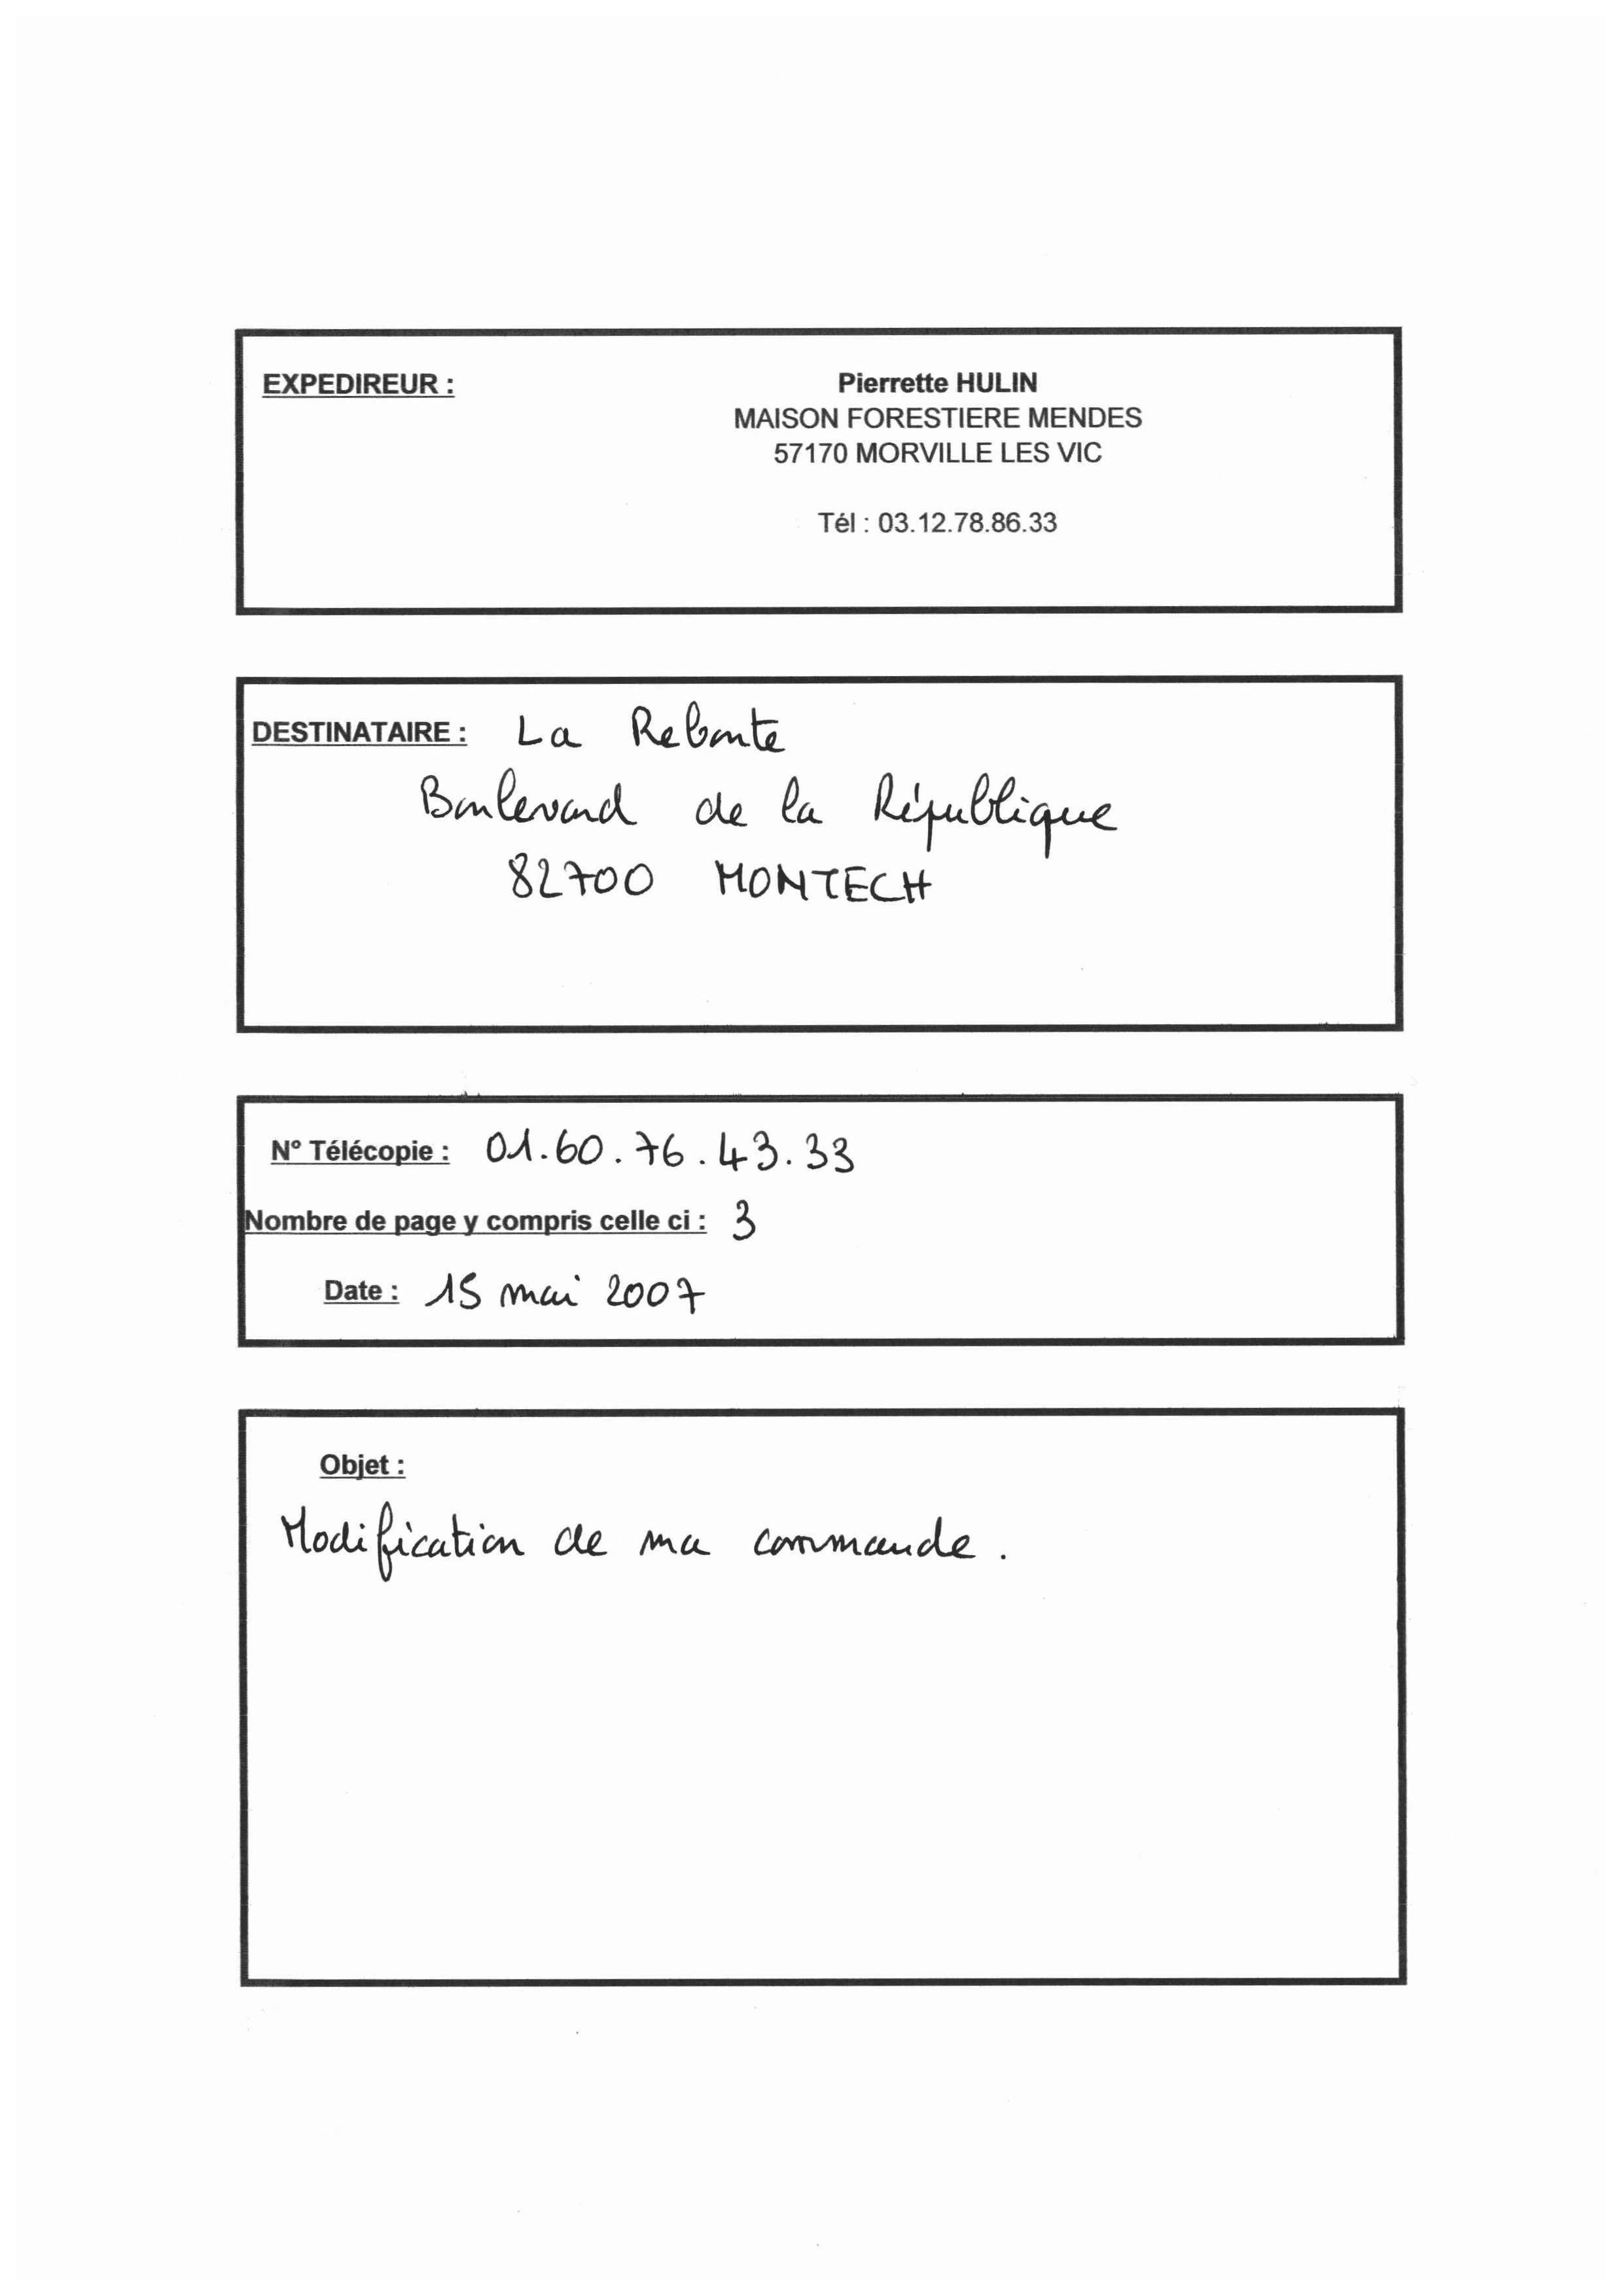 EXPEDIREUR :
Pierrette HULIN
MAISON FORESTIERE MENDES
57170 MORVILLE LES VIC
Tél : 03.12.78.86.33
DESTINATAIRE : La Reboute
Boulevard de la République
82700 MONTECH
N° Télécopie : 01.60.76.43.33
Nombre de page y compris celle ci : 3
Date : 15 mai 2007
Objet :
Modification de ma commande.